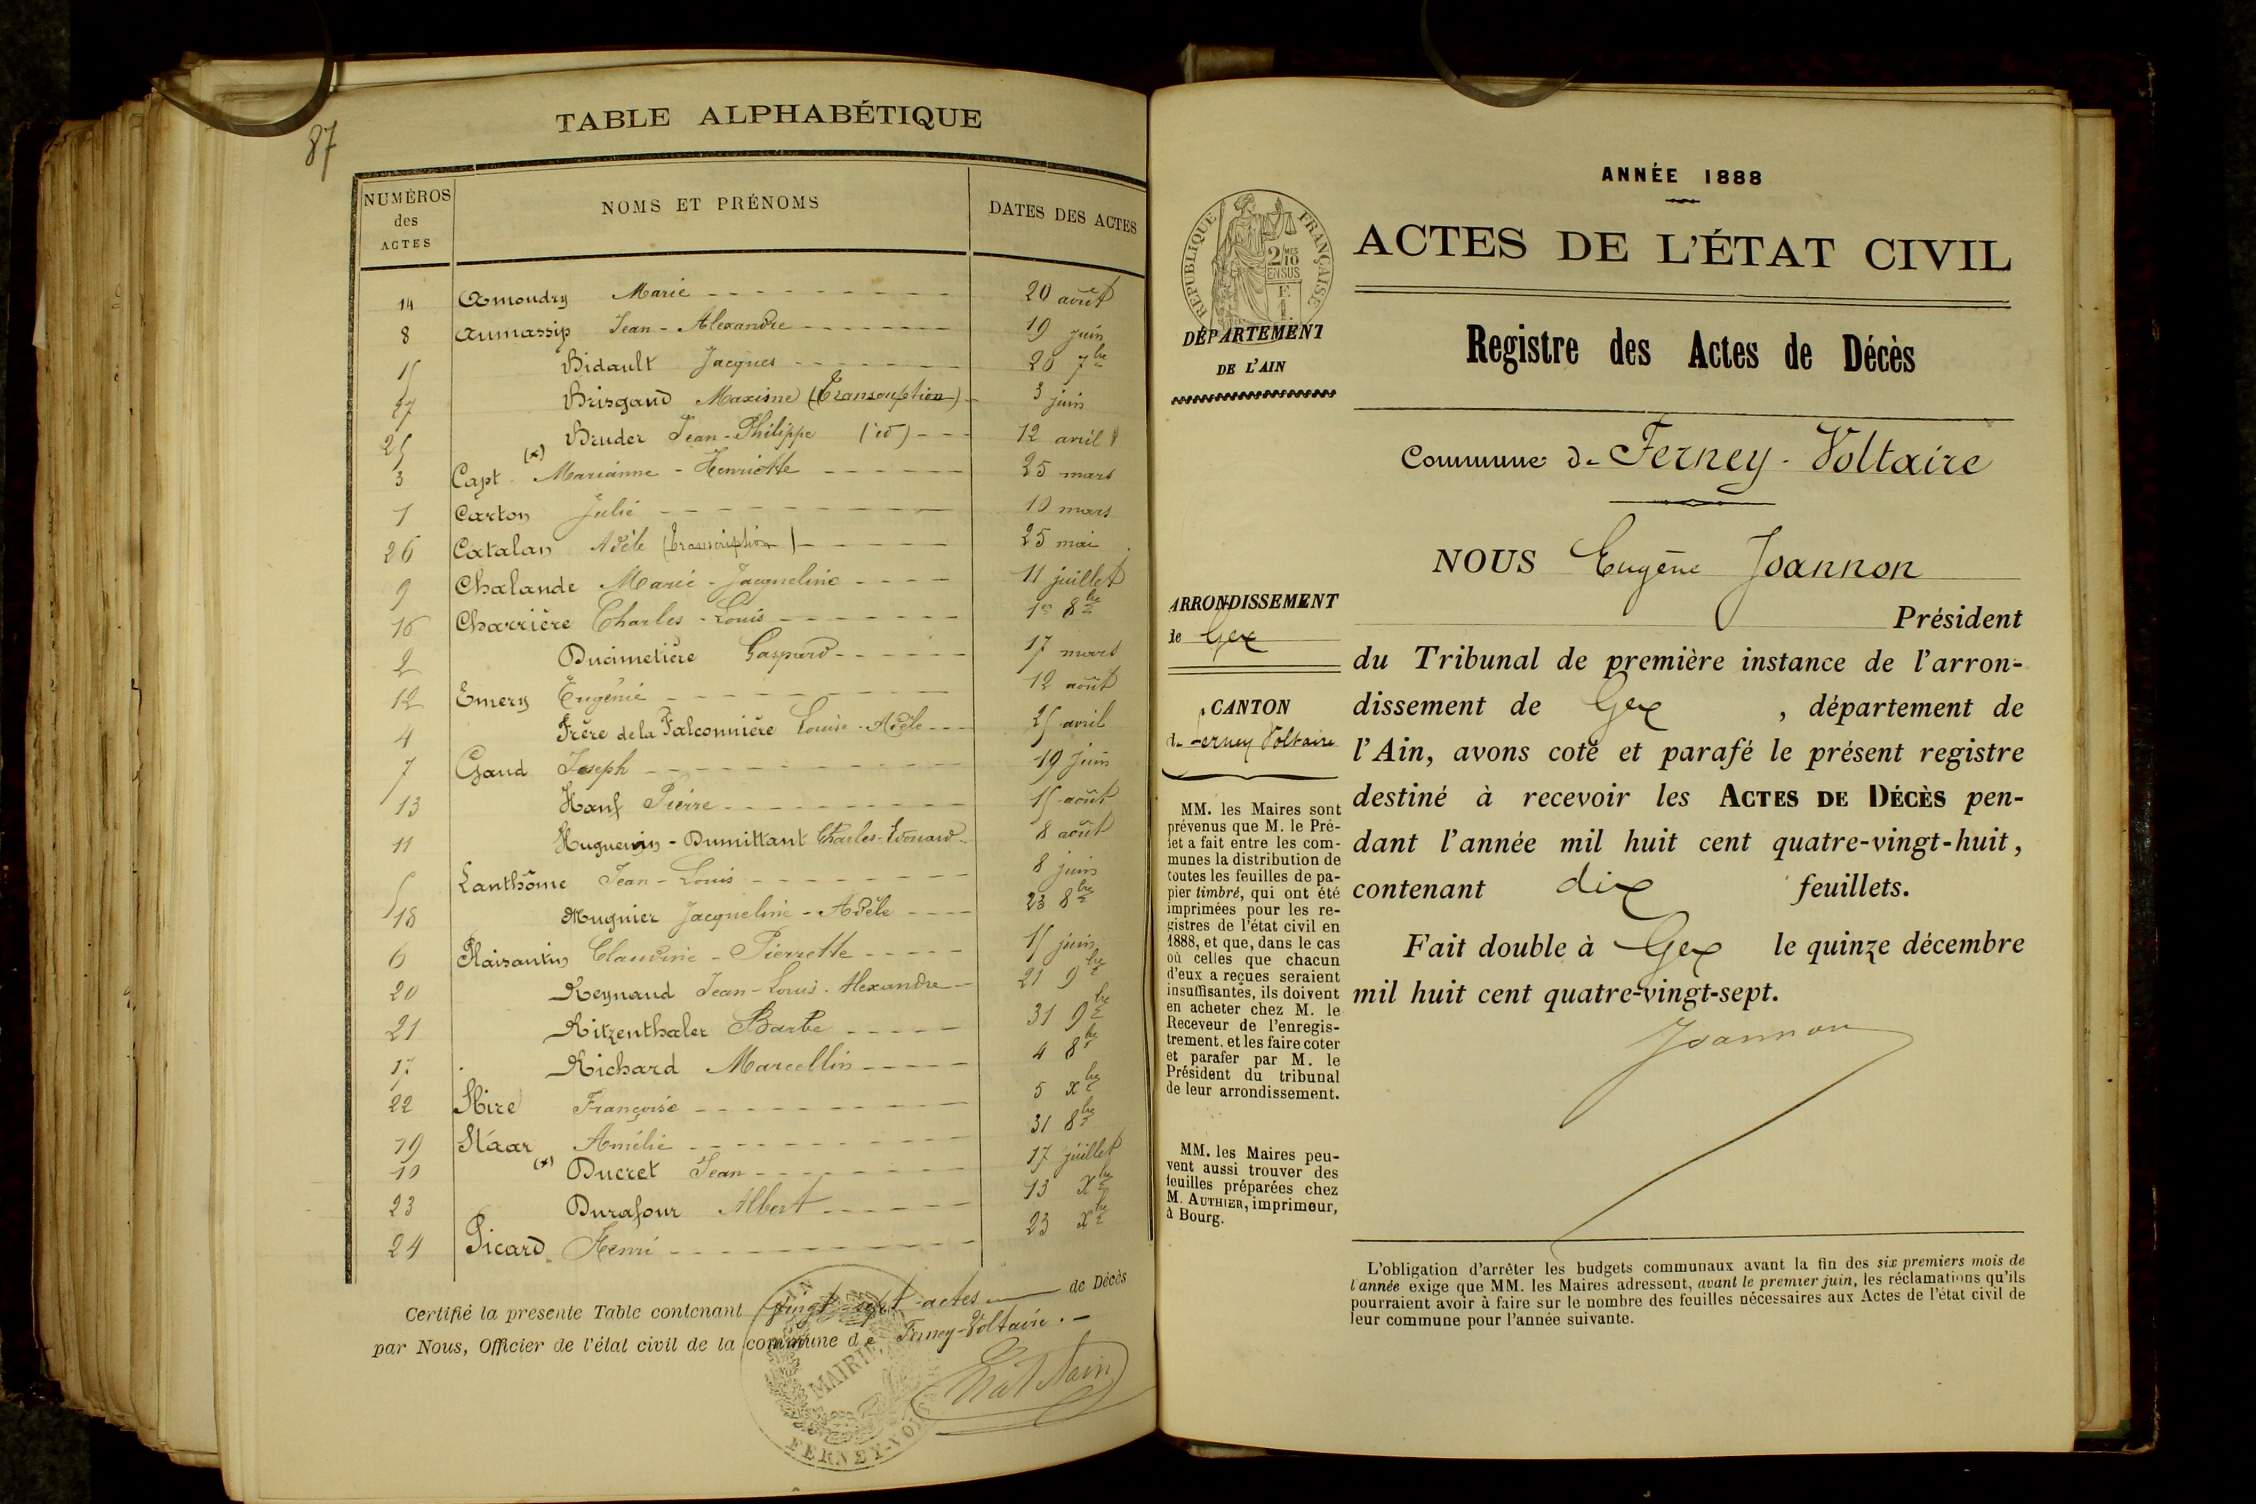 87
TABLE ALPHABÉTIQUE
NUMÉROS des ACTES NOMS ET PRÉNOMS DATES DES ACTES
14 Amoudry Marie 20 août
8 Aumassip Jean-Alexandre 19 juin
15 Bidault Jacques 20 7bre
27 Brisgaud Maxime (Transcription) 3 juin
25 Bruder Jean-Philippe (id) 12 avril
3 Capt (x) Marianne-Henriette 25 mars
1 Carton Julie 10 mars
26 Catalan Adèle (transcription) 25 mai
9 Chalande Marie-Jacqueline 11 juillet
16 Charrière Charles-Louis 1er 8bre
2 Ducimetière Gaspard 17 mars
12 Emery Eugénie 12 août
4 Frère de la Falconnière Louise-Adèle 25 avril
7 Gaud Joseph 19 juin
13 Hanf Pierre 15 août
11 Huguenin-Dumittant Charles-Edouard 8 août
5 Lanthôme Jean-Louis 8 juin
18 Mugnier Jacqueline-Adèle 23 8bre
6 Plaisantin Claudine-Pierrette 15 juin
20 Reynaud Jean-Louis-Alexandre 21 9bre
21 Ritzenthaler Barbe 31 9bre
17 Richard Marcellin 4 8bre
22 Hire Françoise 5 xbre
19 Staar Amélie 31 8bre
10 (x) Ducret Jean 17 juillet
23 Durafour Albert 13 Xbre
24 Picard Henri 23 xbre
Certifié la présente Table contenant vingt-sept actes de Décès
par Nous, Officier de l'état civil de la commune de Ferney-Voltaire.
MAIRIE
FERNEY-VO
ANNÉE 1888
ACTES DE L'ÉTAT CIVIL
RÉPUBLIQUE FRANÇAISE
2/10 EN SUS
DÉPARTEMENT
DE L'AIN
Registre des Actes de Décès
Commune de Ferney-Voltaire
ARRONDISSEMENT
de Gex
CANTON
de Ferney Voltaire
MM. les Maires sont
prévenus que M. le Pré-
fet a fait entre les com-
munes la distribution de
toutes les feuilles de pa-
pier timbré, qui ont été
imprimées pour les re-
gistres de l'état civil en
1888, et que, dans le cas
où celles que chacun
d'eux a reçues seraient
insuffisantes, ils doivent
en acheter chez M. le
Receveur de l'enregis-
trement, et les faire coter
et parafer par M. le
Président du tribunal
de leur arrondissement.
MM. les Maires peu-
vent aussi trouver des
feuilles préparées chez
M. AUTHIER, imprimeur,
à Bourg.
NOUS Eugène Joannon
Président
du Tribunal de première instance de l'arron-
dissement de Gex, département de
l'Ain, avons coté et parafé le présent registre
destiné à recevoir les ACTES DE DÉCÈS pen-
dant l'année mil huit cent quatre-vingt-huit,
contenant dix feuillets.
Fait double à Gex le quinze décembre
mil huit cent quatre-vingt-sept.
Joannon
L'obligation d'arrêter les budgets communaux avant la fin des six premiers mois de
l'année exige que MM. les Maires adressent, avant le premier juin, les réclamations qu'ils
pourraient avoir à faire sur le nombre des feuilles nécessaires aux Actes de l'état civil de
leur commune pour l'année suivante.